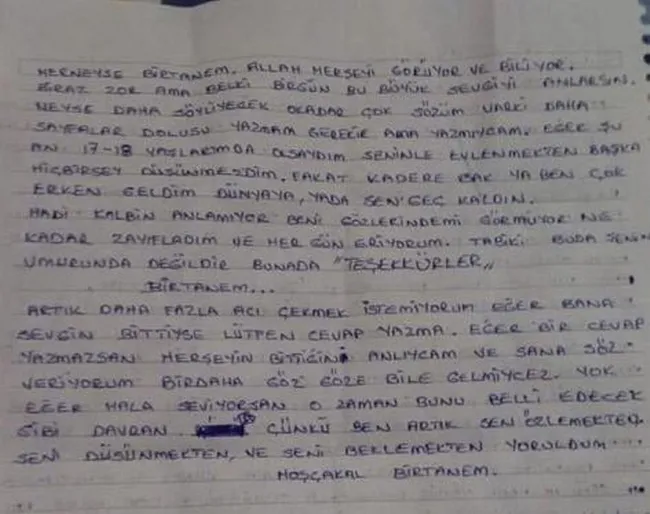 HERNEYSE BİRTANEM. ALLAH HERŞEYİ GÖRÜYOR VE BİLİYOR.
BİRAZ ZOR AMA BELKİ BİRGÜN BU BÜYÜK SEVGİYİ ANLARSIN.
NEYSE DAHA SÖYLÜYECEK OKADAR ÇOK SÖZÜM VARKİ DAHA
SAYFALAR DOLUSU YAZMAM GEREKİR AMA YAZMIYCAM. EĞER ŞU
AN 17-18 YAŞLARIMDA OLSAYDIM SENİNLE EVLENMEKTEN BAŞKA
HİÇBİRŞEY DÜŞÜNMEZDİM. FAKAT KADERE BAK YA BEN ÇOK
ERKEN GELDİM DÜNYAYA, YADA SEN GEÇ KALDIN.
HADİ KALBİN ANLAMIYOR BENİ GÖZLERİNDEMİ GÖRMÜYOR NE
KADAR ZAYIFLADIM VE HER GÜN ERİYORUM. TABİKİ BUDA SENİN
UMURUNDA DEĞİLDİR BUNADA "TEŞEKKÜRLER"
BİRTANEM...
ARTIK DAHA FAZLA ACI ÇEKMEK İSTEMİYORUM EĞER BANA
SEVGİN BİTTİYSE LÜTFEN CEVAP YAZMA. EĞER BİR CEVAP
YAZMAZSAN HERŞEYİN BİTTİĞİNİ ANLIYCAM VE SANA SÖZ
VERİYORUM BİRDAHA GÖZ GÖZE BİLE GELMİYCEZ. YOK
EĞER HALA SEVİYORSAN O ZAMAN BUNU BELLİ EDECEK
GİBİ DAVRAN ÇÜNKÜ BEN ARTIK SENİ ÖZLEMEKTEN,
SENİ DÜŞÜNMEKTEN, VE SENİ BEKLEMEKTEN YORULDUM...
HOŞÇAKAL BİRTANEM.